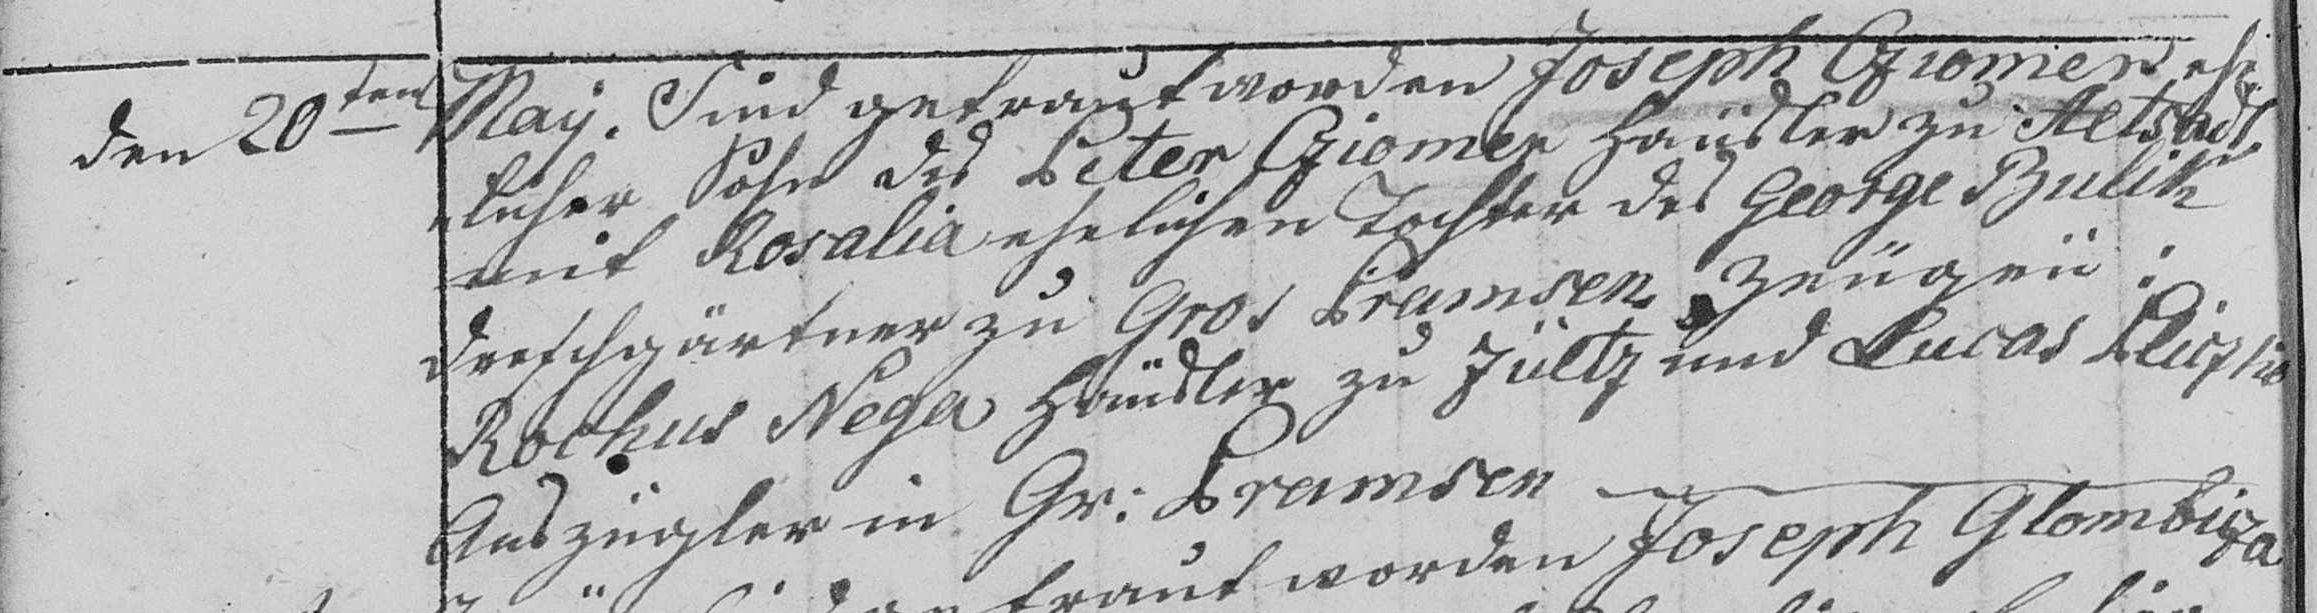 den 20ten May. Sind getraut worden Joseph Cziomer ehe
elicher Sohn des Peter Cziomer Häusler zu Altstadt
mit Rosalia ehelichen Tochter des George Bulik
Dreschgärtner zu Gros Pramsen. Zeugen:
Rochus Nega Häusler zu Zültz und Lucas
Auszügler in Gr: Pramsen
getraut worden Joseph Glombiza